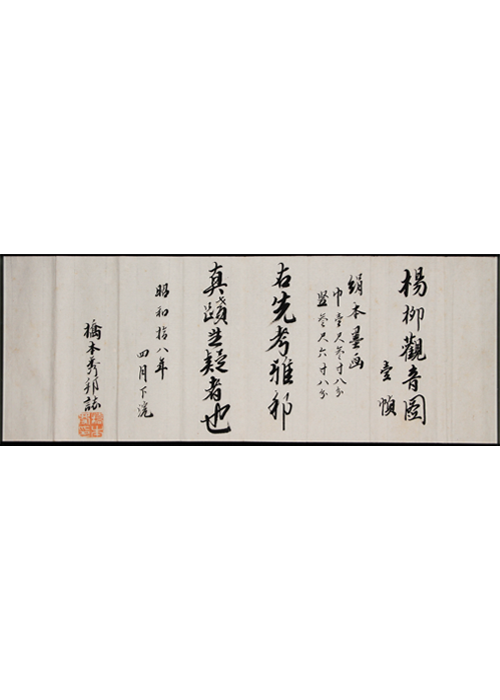 楊柳觀音圖
壹幀
絹本墨画
巾壹尺參寸八分
竪參尺六寸八分
右先考雅邦
真蹟無疑者也
昭和拾八年
四月下浣
橋本秀邦誌